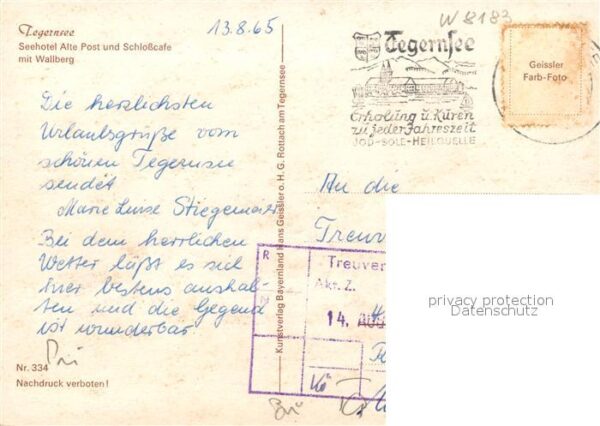 Tegernsee
Seehotel Alte Post und Schloßcafe
mit Wallberg
13.8.65
W 8183
Tegernsee
Erholung u. Kuren
zu jeder Jahreszeit
JOD-SOLE-HEILQUELLE
Geissler
Farb-Foto
Die herzlichsten
Urlaubsgrüße vom
schönen Tegernsee
sendet
Marie Luise Stiegemeier
Bei dem herrlichen
Wetter läßt es sich
hier bestens aushal-
ten und die Gegend
ist wunderbar
Nr. 334
Nachdruck verboten!
Kunstverlag Bayernland Hans Geissler o.H.G. Rottach am Tegernsee
An die
Treuv
Treuver
Akt. Z.
14. AUG
privacy protection
Datenschutz